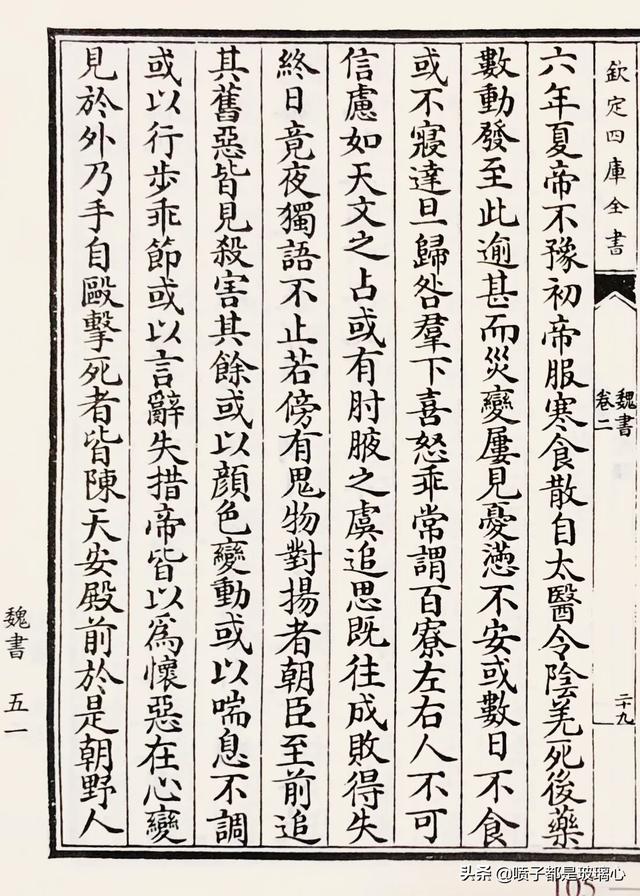 欽定四庫全書
魏書
卷二
二十九
六年夏帝不豫初帝服寒食散自太醫令陰羌死後藥
數動發至此逾甚而災變屢見憂懣不安或數日不食
或不寢達旦歸咎羣下喜怒乖常謂百寮左右人不可
信慮如天文之占或有肘腋之虞追思既往成敗得失
終日竟夜獨語不止若傍有鬼物對揚者朝臣至前追
其舊惡皆見殺害其餘或以顔色變動或以喘息不調
或以行步乖節或以言辭失措帝皆以爲懷惡在心變
見於外乃手自毆擊死者皆陳天安殿前於是朝野人
魏書 五一
105
头条 @喷子都是玻璃心